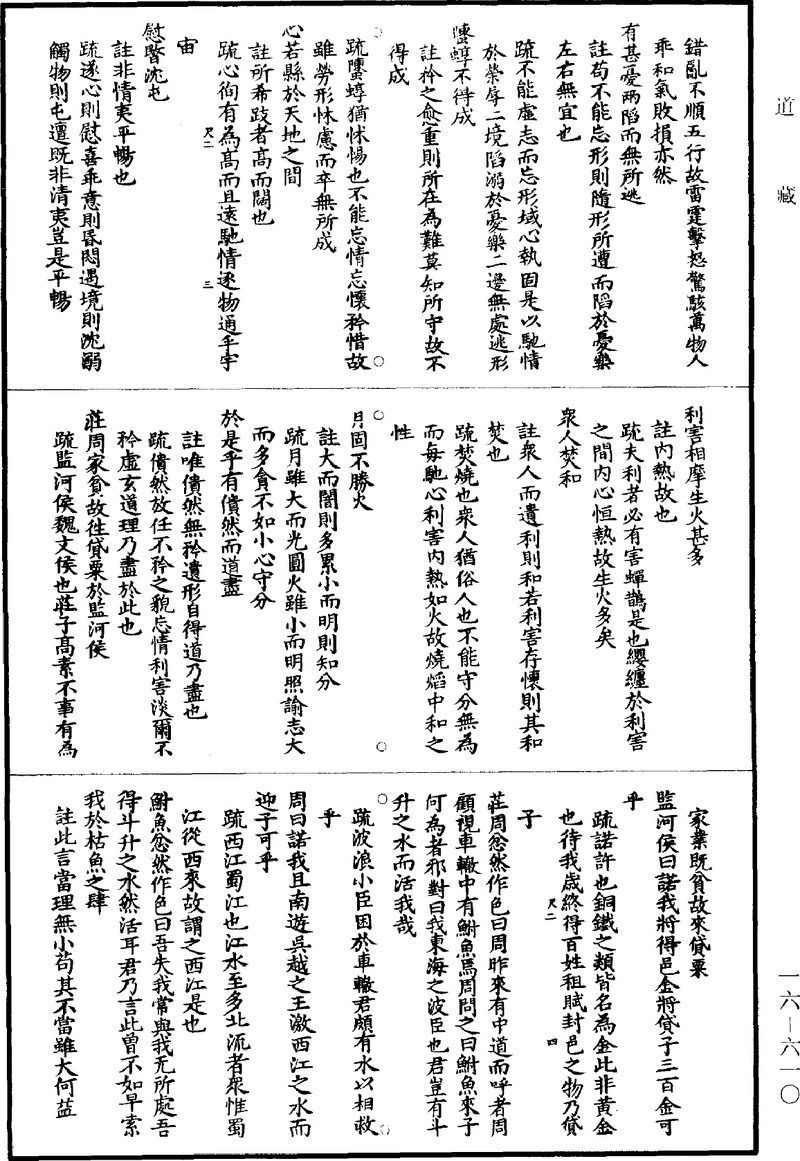 道藏
錯亂不順五行故雷霆擊怒驚駭萬物人
乖和氣敗損亦然
有甚憂兩陷而無所逃
註苟不能忘形則隨形所遭而陷於憂樂
左右無宜也
疏不能虛志而忘形域心執固是以馳情
於榮辱二境陷溺於憂樂二邊無處逃形
𧑒蜳不得成
註矜之愈重則所在為難莫知所守故不
得成
疏𧑒蜳猶怵惕也不能忘情忘懷矜惜故
雖勞形怵慮而卒無所成
心若縣於天地之間
註所希跂者高而闊也
疏心徇有為高而且遠馳情逐物通乎宇
尺二
三
宙
慰暋沈屯
註非情夷平暢也
疏遂心則慰喜乖意則昏悶遇境則沈溺
觸物則屯邅既非清夷豈是平暢
利害相摩生火甚多
註內熱故也
疏夫利者必有害蟬鵲是也纓纏於利害
之間內心恒熱故生火多矣
眾人焚和
註眾人而遺利則和若利害存懷則其和
焚也
疏焚燒也眾人猶俗人也不能守分無為
而每馳心利害內熱如火故燒熖中和之
性
月固不勝火
註大而闇則多累小而明則知分
疏月雖大而光圓火雖小而明照諭志大
而多貪不如小心守分
於是乎有僓然而道盡
註唯僓然無矜遺形自得道乃盡也
疏僓然放任不矜之貌忘情利害淡爾不
矜虛玄道理乃盡於此也
莊周家貧故往貸粟於監河侯
疏監河侯魏文侯也莊子高素不事有為
家業既貧故來貸粟
監河侯曰諾我將得邑金將貸子三百金可
乎
疏諾許也銅鐵之類皆名為金此非黃金
也待我歲終得百姓租賦封邑之物乃貸
尺二
四
子
莊周忿然作色曰周昨來有中道而呼者周
顧視車轍中有鮒魚焉周問之曰鮒魚來子
何為者邪對曰我東海之波臣也君豈有斗
升之水而活我哉
疏波浪小臣困於車轍君頗有水以相救
乎
周曰諾我且南遊吳越之王激西江之水而
迎子可乎
疏西江蜀江也江水至多北流者眾惟蜀
江從西來故謂之西江是也
鮒魚忿然作色曰吾失我常與我无所處吾
得斗升之水然活耳君乃言此曾不如早索
我於枯魚之肆
註此言當理無小苟其不當雖大何益
一六－六一〇